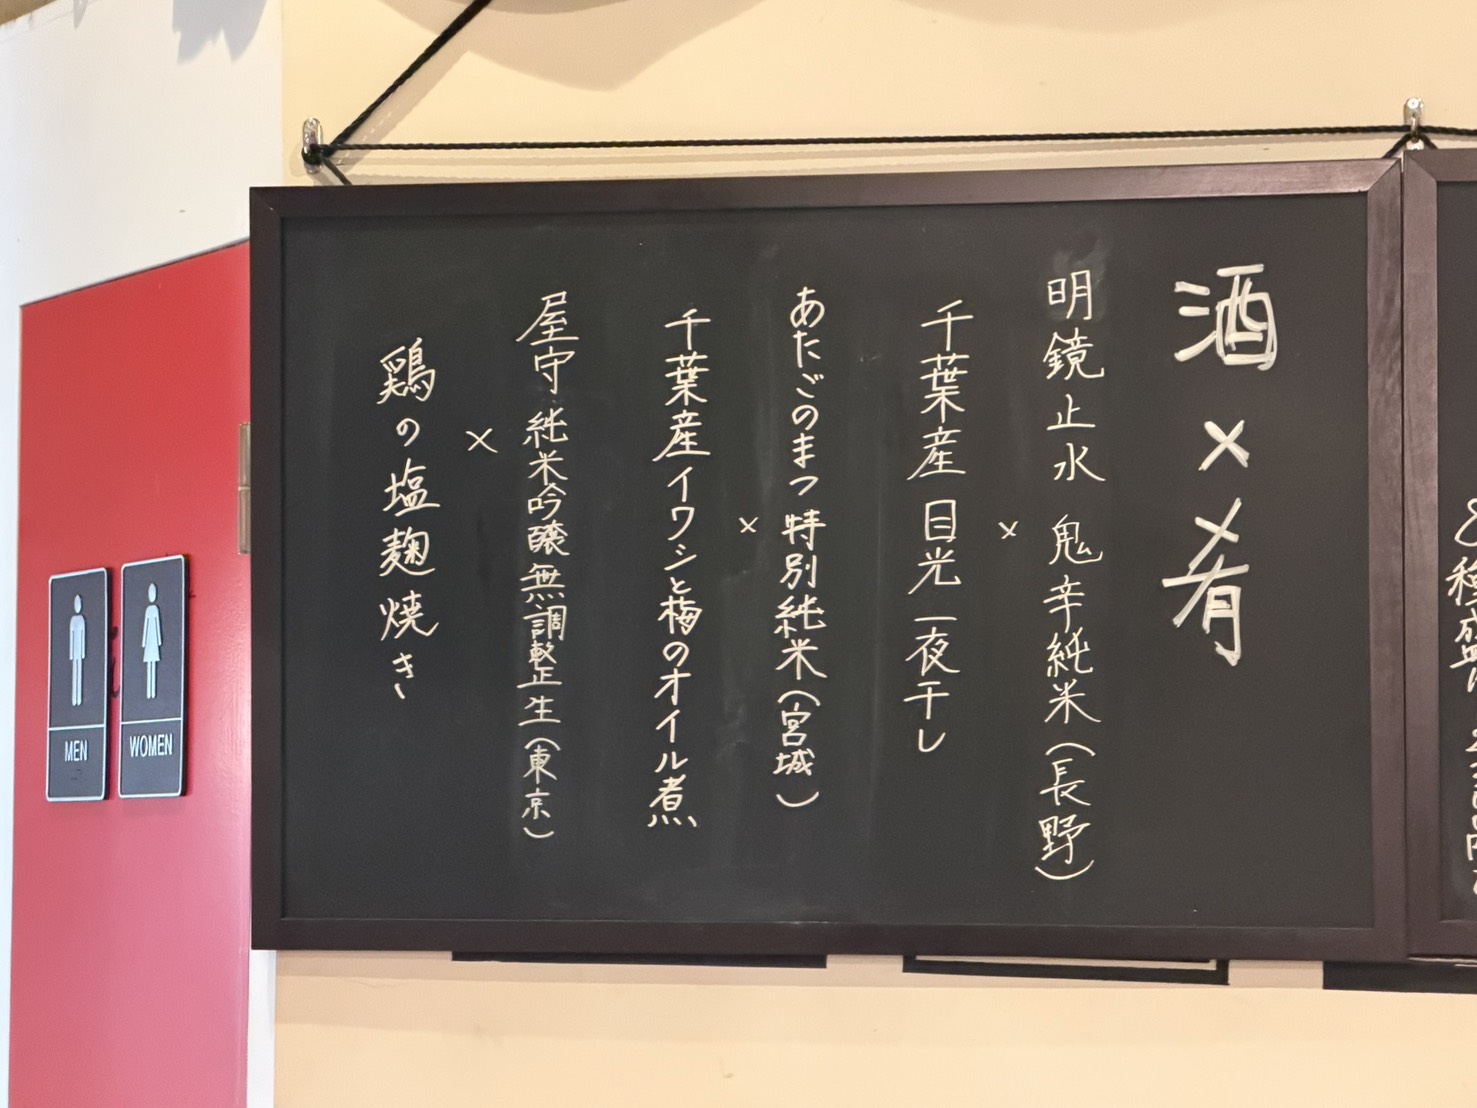 酒×肴
明鏡止水 鬼辛純米(長野)
×
千葉産 目光一夜干し
あたごのまつ 特別純米(宮城)
×
千葉産イワシと梅のオイル煮
屋守 純米吟醸無調整生(東京)
×
鶏の塩麹焼き
MEN
WOMEN